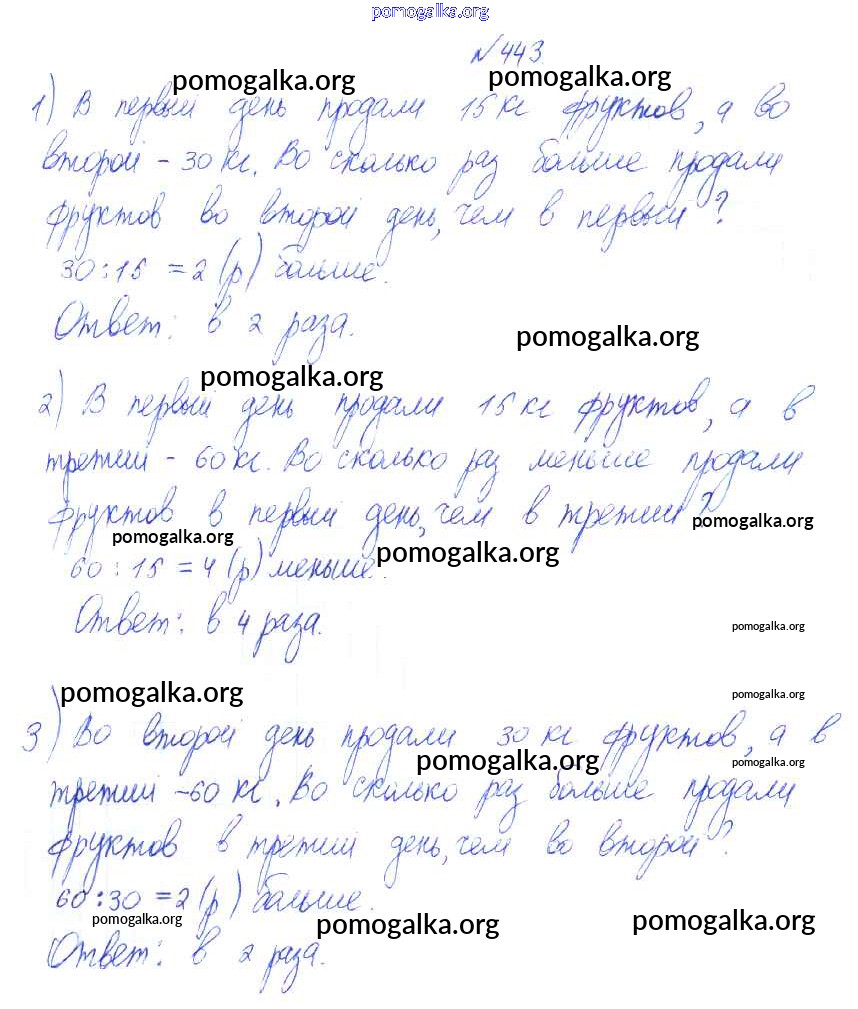 pomogalka.org
№ 443.
pomogalka.org pomogalka.org
1) В первый день продали 15 кг фруктов, а во
второй - 30 кг. Во сколько раз больше продали
фруктов во второй день, чем в первый?
30 : 15 = 2 (р) больше.
Ответ: в 2 раза.
pomogalka.org
pomogalka.org
2) В первый день продали 15 кг фруктов, а в
третий - 60 кг. Во сколько раз меньше продали
фруктов в первый день, чем в третий?
pomogalka.org
pomogalka.org
pomogalka.org
60 : 15 = 4 (р) меньше.
Ответ: в 4 раза.
pomogalka.org
pomogalka.org
pomogalka.org
3) Во второй день продали 30 кг фруктов, а в
pomogalka.org
pomogalka.org
третий - 60 кг. Во сколько раз больше продали
фруктов в третий день, чем во второй?
60 : 30 = 2 (р) больше.
pomogalka.org
pomogalka.org
pomogalka.org
Ответ: в 2 раза.